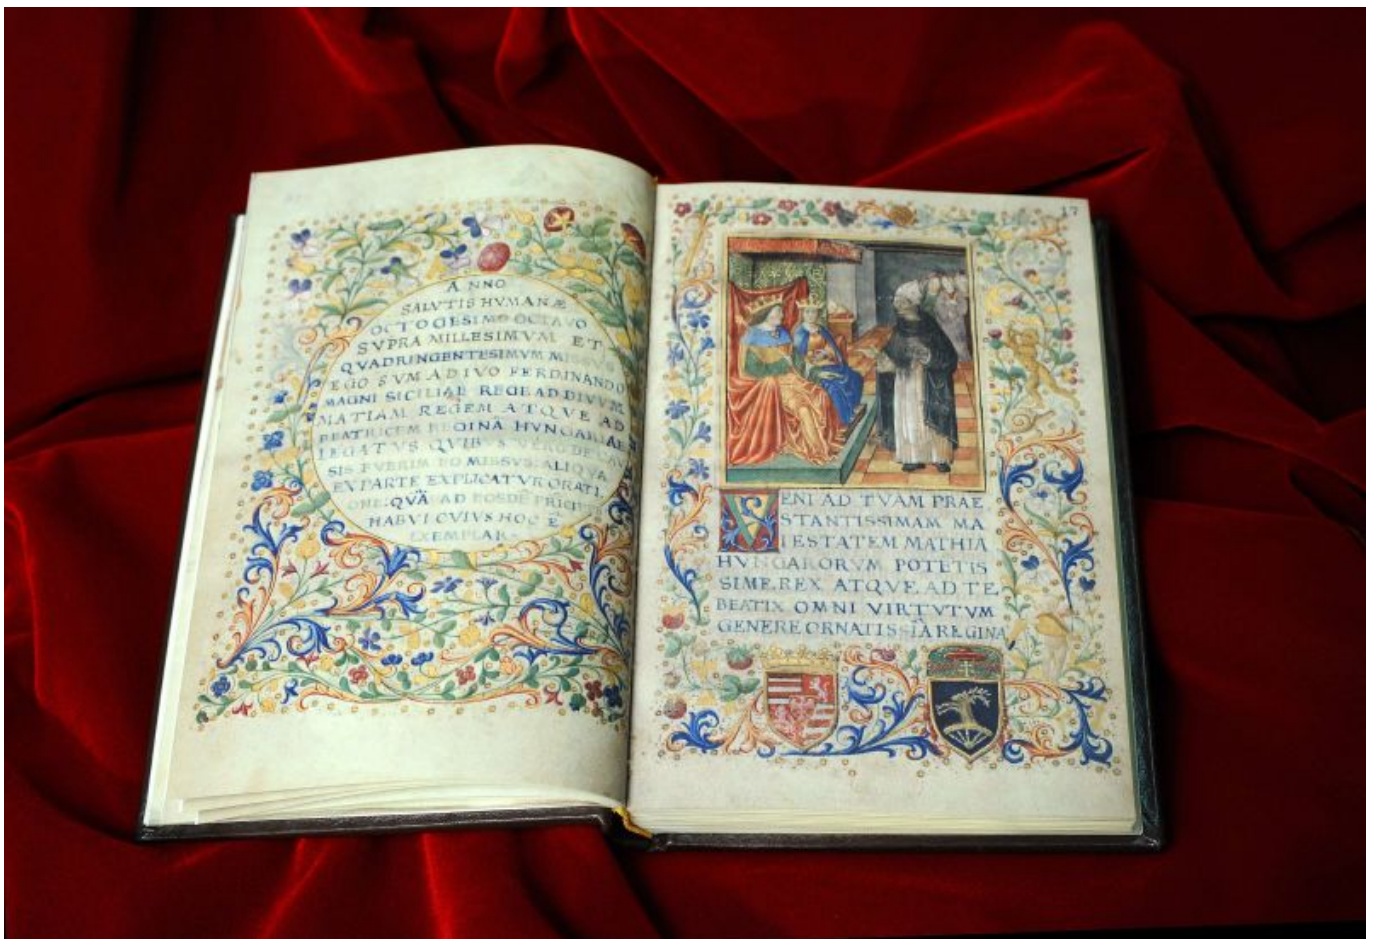 ANNO
SALVTIS HVMANÆ
OCTOGESIMO OCTAVO
SVPRA MILLESIMVM ET
QVADRINGENTESIMVM MISSVS
EGO SVM A DIVO FERDINANDO
MAGNI SICILIAE REGE AD DIVVM
MATIAM REGEM ATQVE AD
BEATRICEM REGINĀ HVNGARIAE
LEGATVS QVIBVS VERO DE
SIS FVERIM MISSVS ALIQVA
EX PARTE EXPLICATVR ORATI
ONE: QVĀ AD EOSDĒ
HABVI CVIVS HOC Ē
EXEMPLAR
17
VENI AD TVAM PRAE
STANTISSIMAM MA
IESTATEM MATHIA
HVNGARORVM POTĒTIS
SIME REX ATQVE AD TE
BEATIX OMNI VIRTVTVM
GENERE ORNATISSĪA REGINA